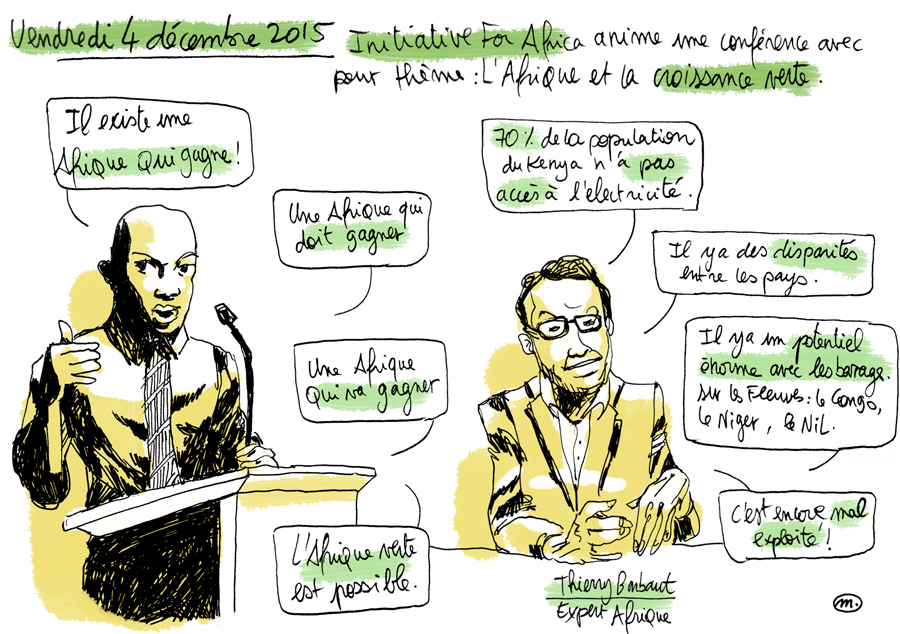 Vendredi 4 décembre 2015
Initiative For Africa anime une conférence avec
pour thème : L'Afrique et la croissance verte.
Il existe une
Afrique qui gagne !
Une Afrique qui
doit gagner
Une Afrique
Qui va gagner
L'Afrique verte
est possible.
70 % de la population
du Kenya n'a pas
accès à l'électricité.
Il y a des disparités
entre les pays.
Il y a un potentiel
énorme avec les barrages
sur les Fleuves : le Congo,
le Niger, le Nil.
c'est encore mal
exploité !
Thierry Barbaut
Expert Afrique
m.